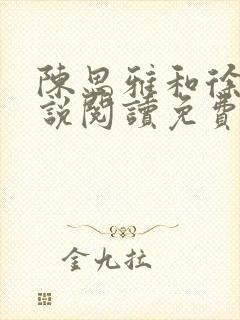 陳思雅和徐
說閱讀免費
金九拉